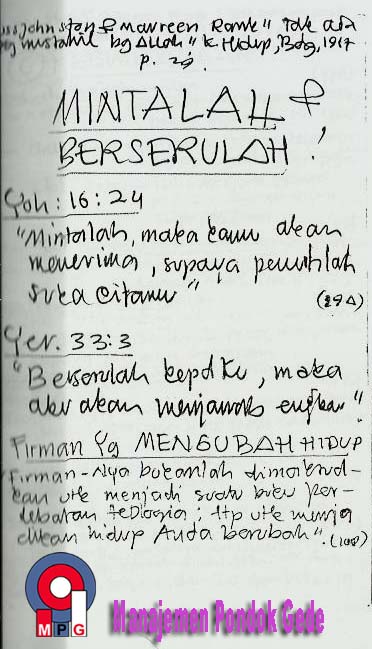 John Stan & Maureen Rank " Tak ada
yg mustahil bg Allah " K Hidup, Bdg, 1987
p.
MINTALAH &
BERSERULAH !
Yoh : 16 : 24
"Mintalah, maka kamu akan
menerima, supaya penuhlah
suka citamu"
(29A)
Yer. 33:3
"Berserulah kepd Ku, maka
aku akan menjawab engkau".
Firman Yg MENGUBAH HIDUP
Firman-Nya bukanlah dimaksud-
kan utk menjadi suatu buku per-
debatan teologia ; ttp utk menja
dikan hidup Anda berubah".
MPG
Manajemen Pondok Gede